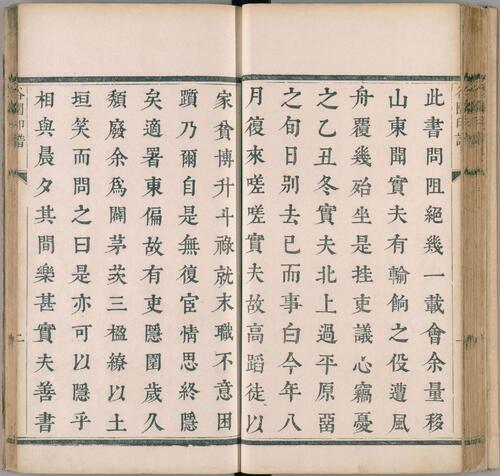 此書問阻絕幾一載會余量移
山東聞實夫有輸餉之役遭風
舟覆幾殆坐是挂吏議心竊憂
之乙丑冬實夫北上過平原畱
之旬日別去已而事白今年八
月復來嗟嗟實夫故高蹈徒以
家貧博升斗祿就末職不意困
躓乃爾自是無復宦情思終隱
矣適署東偏故有吏隱園歲久
頹廢余爲闢茅茨三楹繚以土
垣笑而問之曰是亦可以隱乎
相與晨夕其間樂甚實夫善書
谷園印譜
二